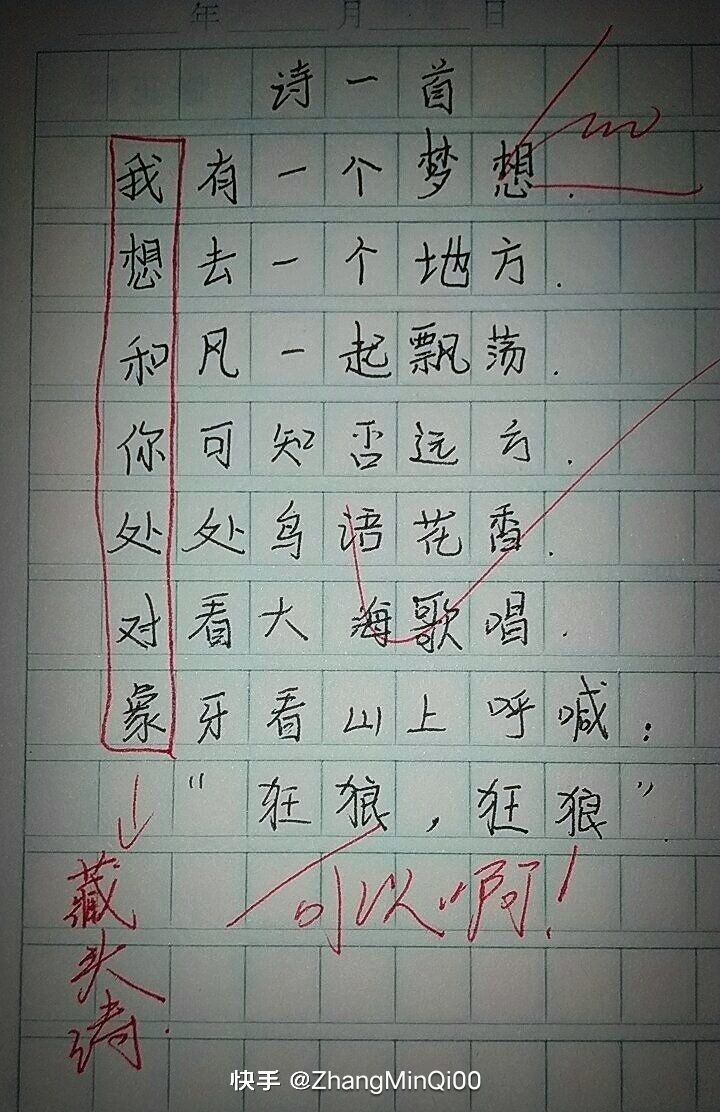 年 月 日
诗一首
我有一个梦想.
想去一个地方.
和风一起飘荡.
你可知否远方.
处处鸟语花香.
对看大海歌唱.
象牙看山上呼喊：
“狂狼，狂狼”
可以啊！
藏头诗.
快手 @ZhangMinQi00